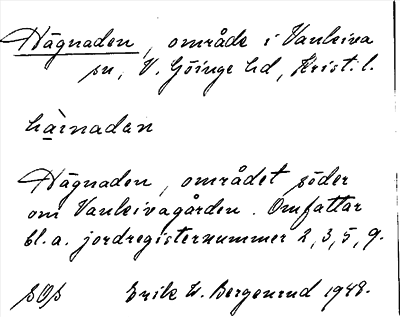 Hägnaden, område i Vankiva
sn, V. Göinge hd, Krist. l.
hàinadan
Hägnaden, området söder
om Vankivagården. Omfattar
bl.a. jordregisternummer 2, 3, 5, 9.
SOS Erik W. Bergenrud 1948.